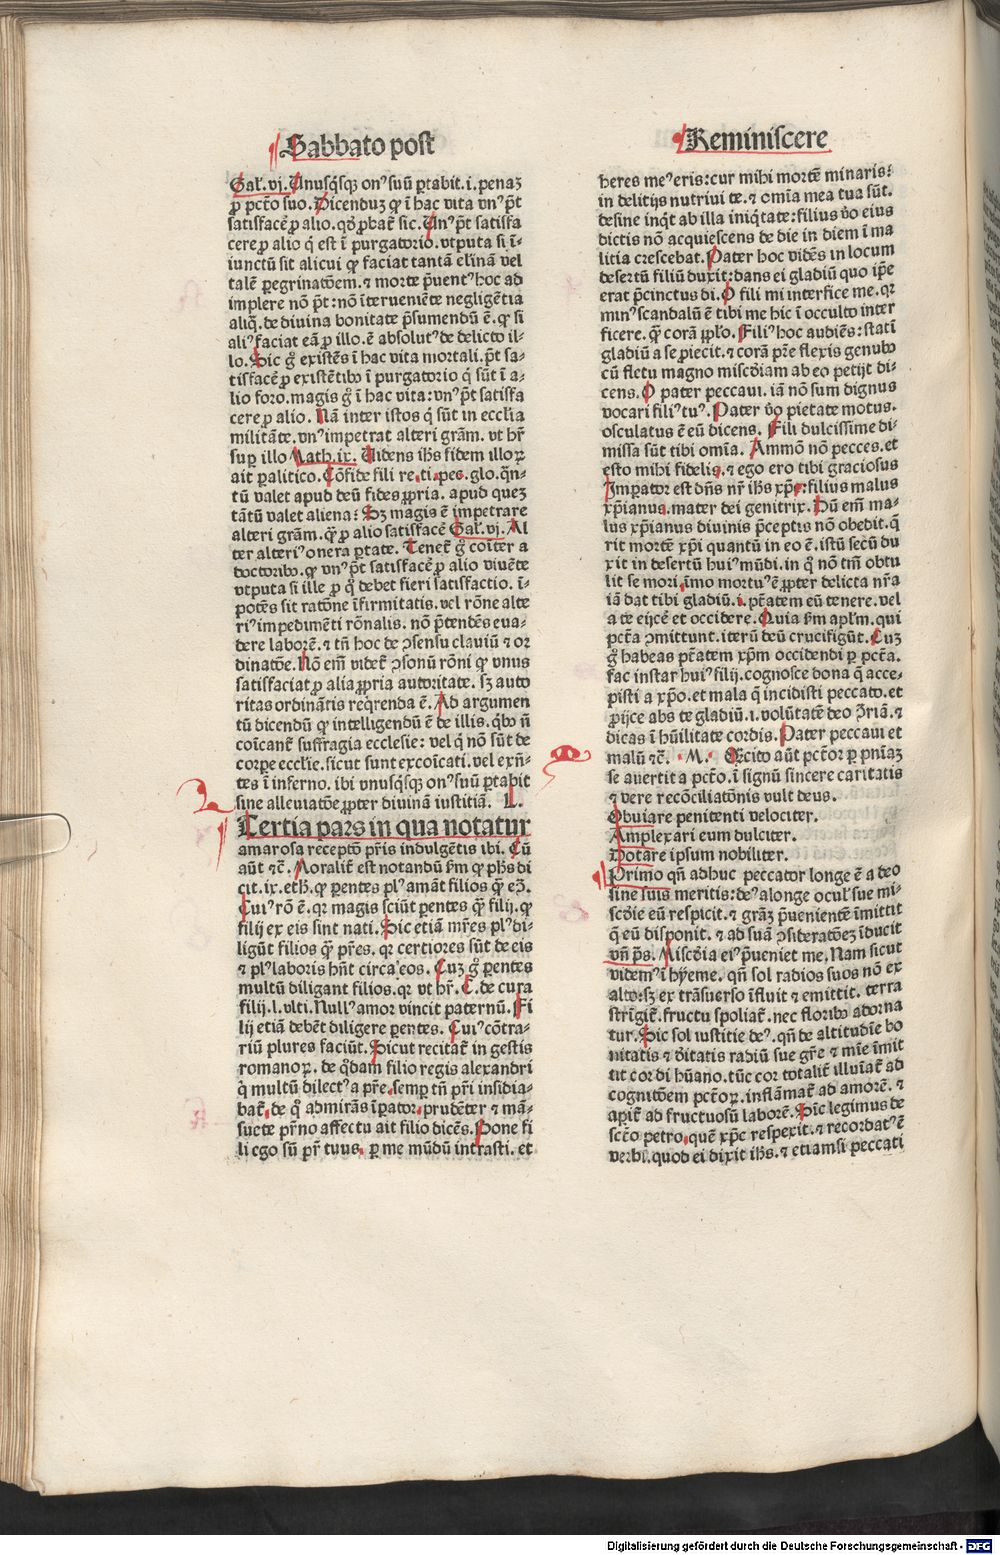 Sabbato post
Reminiscere
Gal̃. vj. Unusq̃sq̃ onꝰ suũ ꝑtabit .i. penaʒ
ꝓ pctõ suo. Dicenduʒ ꝙ ĩ hac vita vnꝰ p̃t
satisfacẽ ꝓ alio. qđ ꝓbat̃ sic. Unꝰ p̃t satisfa
cere ꝓ alio q̃ est ĩ purgatorio. vtputa si ĩ-
iunctũ sit alicui ꝙ faciat tantã elĩnã vel
talẽ ꝑegrinatõem. ⁊ morte p̃uentꝰ hoc ad
implere nõ p̃t : nõ ĩterueniẽte negligẽtia
aliq̃. de divina bonitate p̃sumendũ ẽ. ꝙ si
aliꝰ faciat eã ꝓ illo. ẽ absolutꝰ de delicto il-
lo. Sic g̊ existẽs ĩ hac vita mortali. p̃t sa-
tisfacẽ ꝓ existẽtibꝰ ĩ purgatorio q̃ sũt ĩ a-
lio foro. magis g̊ ĩ hac vita : vnꝰ p̃t satisfa
cere ꝓ alio. Nã inter istos q̃ sũt in ecclĩa
militãte. vnꝰ impetrat alteri grãm. vt hr̃
sup̱ illo Math. ix. Videns ihs̃ fidem illoꝝ
ait paralitico. Cõfide fili re. ti. pes. glo. q̃n-
tũ valet apud deũ fides ꝓpria. apud queʒ
tãtũ valet aliena : Sʒ magis ẽ impetrare
alteri grãm. q̃ ꝓ alio satisfacẽ Gal̃. vj. Al
ter alteriꝰ onera ꝑtate. Tenet̃ g̊ cõiter a
doctoribꝰ. ꝙ vnꝰ p̃t satisfacẽ ꝓ alio viuẽte
vtputa si ille ꝓ q̊ debet fieri satisfactio. ĩ-
potẽs sit ratõne ĩfirmitatis. vel rõne alte
riꝰ impedimẽti rõnalis. nõ p̃tendẽs eua-
dere laborẽ. ⁊ tñ hoc de ↄsensu clauiũ ⁊ or
dinatõe. Nõ em̃ videt̃ ↄsonũ rõni ꝙ vnus
satisfaciat ꝓ alia ꝓpria autoritate. sʒ auto
ritas ordinãtis req̃renda ẽ. Ad argumen
tũ dicendũ ꝙ intelligendũ ẽ de illis. q̃bꝰ ñ
cõicant̃ suffragia ecclesie : vel q̃ nõ sũt de
corpe ecclie. sicut sunt excoĩcati. vel exñ-
tes ĩ inferno. ibi vnusq̃sq̃ onꝰ suũ ꝑtabit
sine alleuiatõe ꝓpter divinã iustitiã. L.
Tertia pars in qua notatur
amorosa receptõ pr̃is indulgẽtis ibi. Cũ
aũt ⁊c̃. Moralit̃ est notandũ fm̃ ꝙ ph̃s di
cit. ix. eth̃. ꝙ ꝑentes plꝰ amãt filios q̃ eʒ̃.
Cuiꝰ rõ ẽ. qr magis sciũt ꝑentes q̃ filij. ꝙ
filij ex eis sint nati. Sic etiã mr̃es plꝰ di-
ligũt filios q̃ pr̃es. qr certiores sũt de eis
⁊ plꝰ laboris hñt circa eos. Cuʒ g̊ ꝑentes
multũ diligant filios. qr vt hr̃. C. de cura
filij. l. vlti. Nullꝰ amor vincit paternũ. Fi
lij etiã debẽt diligere ꝑentes. Cuiꝰ cõtra-
riũ plures faciũt. Sicut recitat̃ in gestis
romanoꝝ. de q̊dam filio regis alexandri
q̃ multũ dilectꝰ a pr̃e. semp̱ tñ pr̃i insidia-
bat̃. de q̊ admirãs ĩpator. prudẽter ⁊ mã-
suete pr̃no affectu ait filio dicẽs. Bone fi
li ego sũ pr̃ tuus. ꝑ me mũdũ intrasti. et
heres meꝰ eris : cur mihi mortẽ minaris :
in delitijs nutriui te. ⁊ omĩa mea tua sũt.
desine inq̃t ab illa iniq̃tate : filius ṽo eius
dictis nõ acquiescens de die in diem ĩ ma
litia crescebat. Pater hoc vidẽs in locum
desertũ filiũ duxit : dans ei gladiũ quo ip̃e
erat p̃cinctus di. O fili mi interfice me. qr
minꝰ scandalũ ẽ tibi me hic ĩ occulto inter
ficere. q̃ corã ppl̃o. Filiꝰ hoc audiẽs : statĩ
gladiũ a se ꝓiecit. ⁊ corã pr̃e flexis genubꝰ
cũ fletu magno misc̃diam ab eo petijt di-
cens. O pater peccaui. iã nõ sum dignus
vocari filiꝰ tuꝰ. Pater ṽo pietate motus.
osculatus ẽ eũ dicens. Fili dulcissime di-
missa sũt tibi omĩa. Ammõ nõ pecces. et
esto mihi fidelis. ⁊ ego ero tibi graciosus
Imperator est dñs nr̃ ihs̃ xp̃s : filius malus
xp̃ianus. mater dei genitrix. Dũ em̃ ma-
lus xp̃ianus divinis p̃ceptis nõ obedit. q̃
rit mortẽ xp̃i quantũ in eo ẽ. istũ secũ du
xit in desertũ huiꝰ mũdi. in q̊ nõ tm̃ obtu
lit se mori. ĩmo mortuꝰ ẽ ꝓpter delicta nr̃a
iã dat tibi gladiũ. i. ptãtem eũ tenere. vel
a te eijcẽ et occidere. Quia fm̃ apl̃m. qui
pctã ↄmittunt. iterũ deũ crucifigũt. Cuʒ
g̊ habeas ptãtem xp̃m occidendi ꝑ pctã.
fac instar huiꝰ filij. cognosce dona q̃ acce-
pisti a xp̃o. et mala q̃ incidisti peccato. et
ꝓijce abs te gladiũ .i. volũtatẽ deo ↄ̃riã. ⁊
dicas ĩ hũilitate cordis. Pater peccaui et
malũ ⁊c̃. M. Scito aũt pctõr ꝑ pniãʒ
se avertit a pctõ. ĩ signũ sincere caritatis
⁊ vere recõciliatõnis vult deus.
Obuiare penitenti velociter.
Amplexari eum dulciter.
Dotare ipsum nobiliter.
Primo qñ adhuc peccator longe ẽ a deo
sine suis meritis : deꝰ alonge oculꝰ sue mi-
sc̃die eũ respicit. ⁊ grãʒ p̃uenientẽ ĩmittit
q̃ eũ disponit. ⁊ ad suã ↄsideratõeʒ ĩducit
vñ p̃s. Misc̃dia eiꝰ p̃ueniet me. Nam sicut
videmꝰ ĩ hyeme. qñ sol radios suos nõ ex
alto : sʒ ex trãsuerso ĩfluit ⁊ emittit. terra
strĩgit̃. fructu spoliat̃. nec floribꝰ adorna
tur. Sic sol iustitie deꝰ. qñ de altitudĩe bo
nitatis ⁊ dĩtatis radiũ sue gr̃e ⁊ mĩe ĩmit
tit cordi hũano. tũc cor totalit̃ illuĩat̃ ad
cognitõem pctõꝝ. inflãmat̃ ad amorẽ. ⁊
apit̃ ad fructuosũ laborẽ. Sic legimus de
sctõ petro. quẽ xp̃s respexit. ⁊ recordatꝰ ẽ
verbi. quod ei dixit ihs̃. ⁊ etiamsi peccati
Digitalisierung gefördert durch die Deutsche Forschungsgemeinschaft - DFG